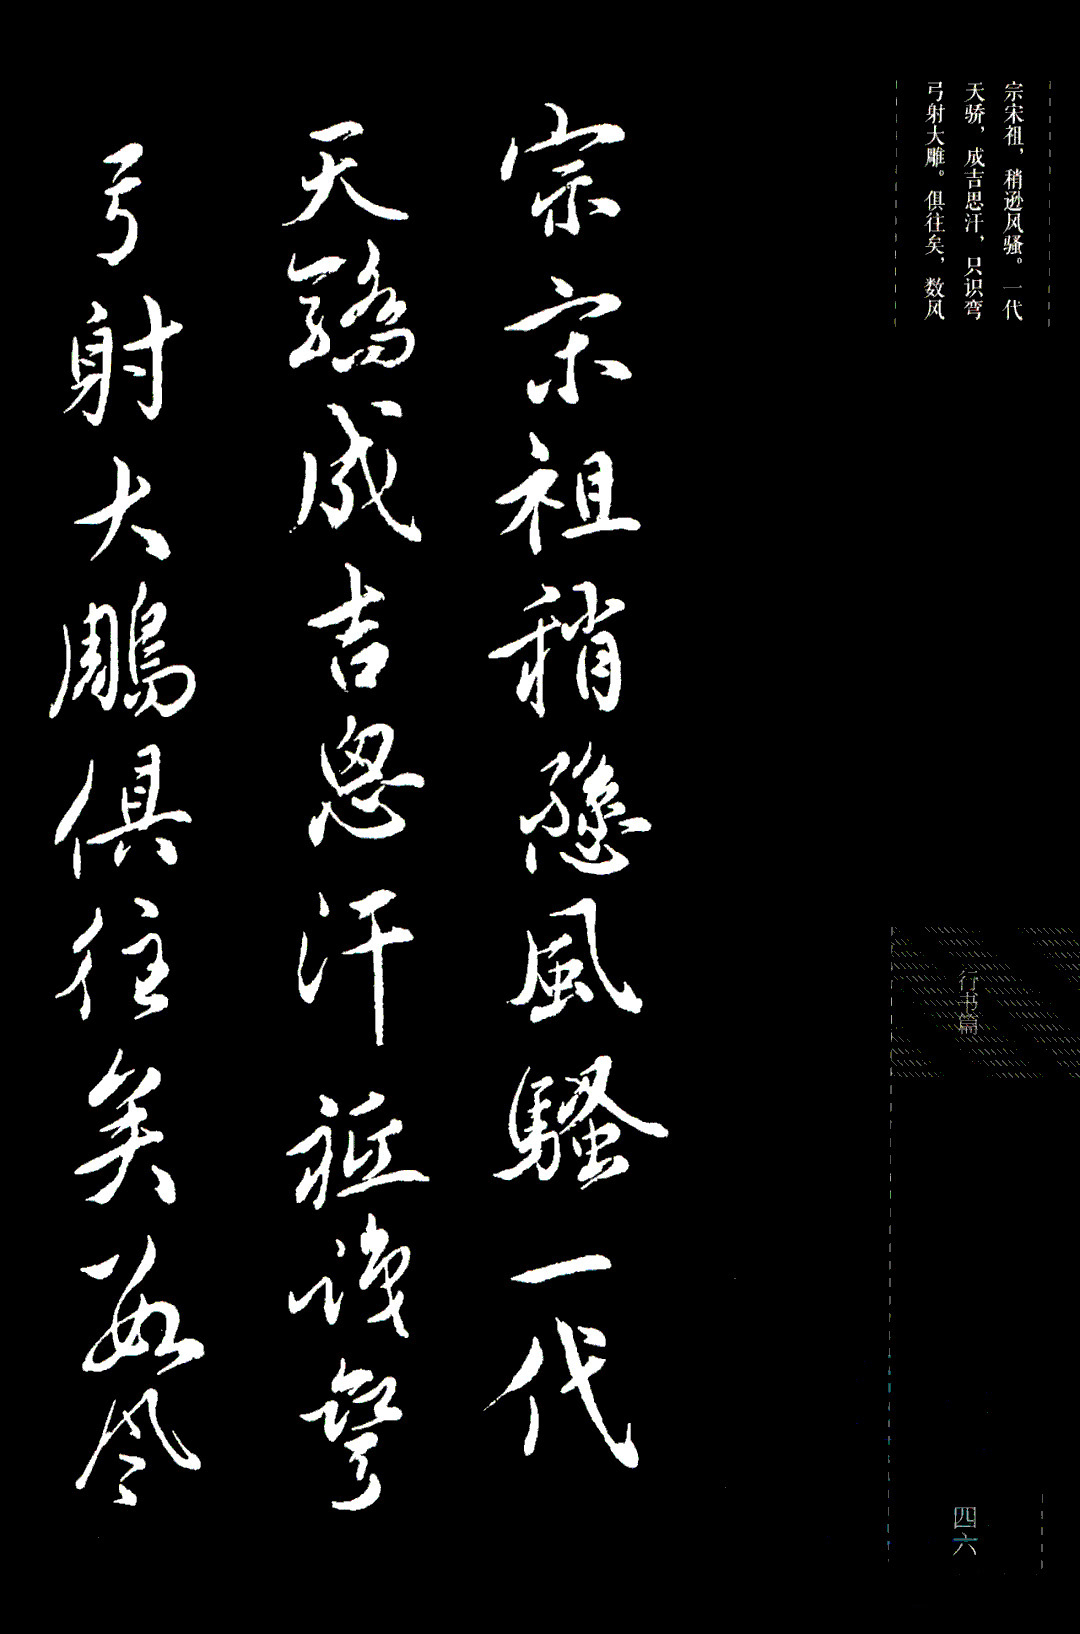 宗宋祖，稍逊风骚。一代
天骄，成吉思汗，只识弯
弓射大雕。俱往矣，数风
宗宋祖稍愻風騷一代
天驕成吉思汗祗識彎
弓射大鵰俱往矣数风
行书篇
四六